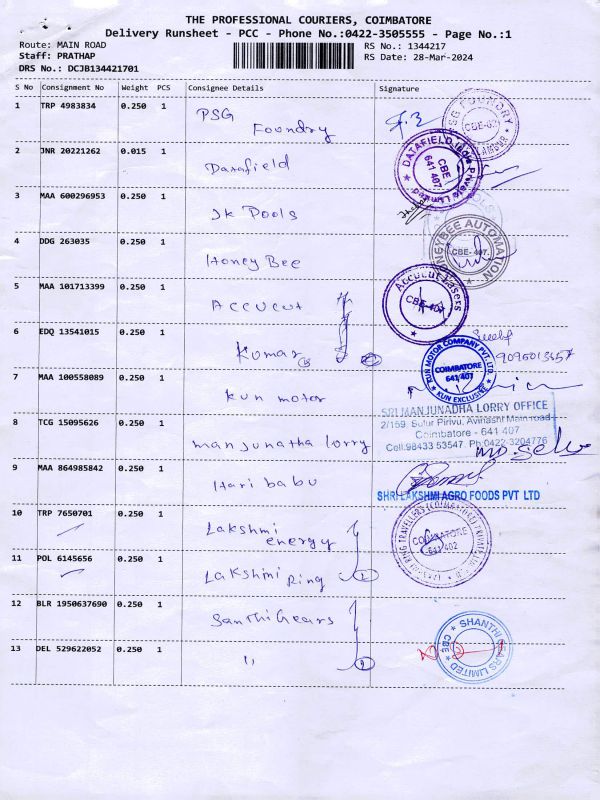 THE PROFESSIONAL COURIERS, COIMBATORE
Delivery Runsheet - PCC - Phone No.:0422-3505555 - Page No.:1
Route: MAIN ROAD RS No.: 1344217
Staff: PRATHAP RS Date: 28-Mar-2024
DRS No.: DCJB134421701
S No Consignment No Weight PCS Consignee Details Signature
1 TRP 4983834 0.250 1 PSG Foundry
PSG FOUNDRY CBE-62
2 JNR 20221262 0.015 1 Datafield
DATAFIELD India Private Limited CBE 641 407
3 MAA 600296953 0.250 1 JK Pools
4 DDG 263035 0.250 1 Honey Bee
HONEYBEE AUTOMATION CBE-407.
5 MAA 101713399 0.250 1 Accucut
Accucut Lasers CBE-407
6 EDQ 13541015 0.250 1 Kumar
7 MAA 100558089 0.250 1 kun motor
KUN MOTOR COMPANY PVT LTD COIMBATORE 641 407 KUN EXCLUSIVE
8 TCG 15095626 0.250 1 manjunatha lorry
SRI MANJUNADHA LORRY OFFICE
2/159, Sulur Pirivu, Avinashi Main road
Coimbatore - 641 407
Cell:98433 53547. Ph:0422-3204776
9 MAA 864985842 0.250 1 Hari babu
SHRI LAKSHMI AGRO FOODS PVT LTD
10 TRP 7650701 0.250 1 Lakshmi energy
11 POL 6145656 0.250 1 Lakshmi Ring
COIMBATORE 641 402
12 BLR 1950637690 0.250 1 Santhi Gears
13 DEL 529622052 0.250 1 "
SHANTHI GEARS LIMITED CBE